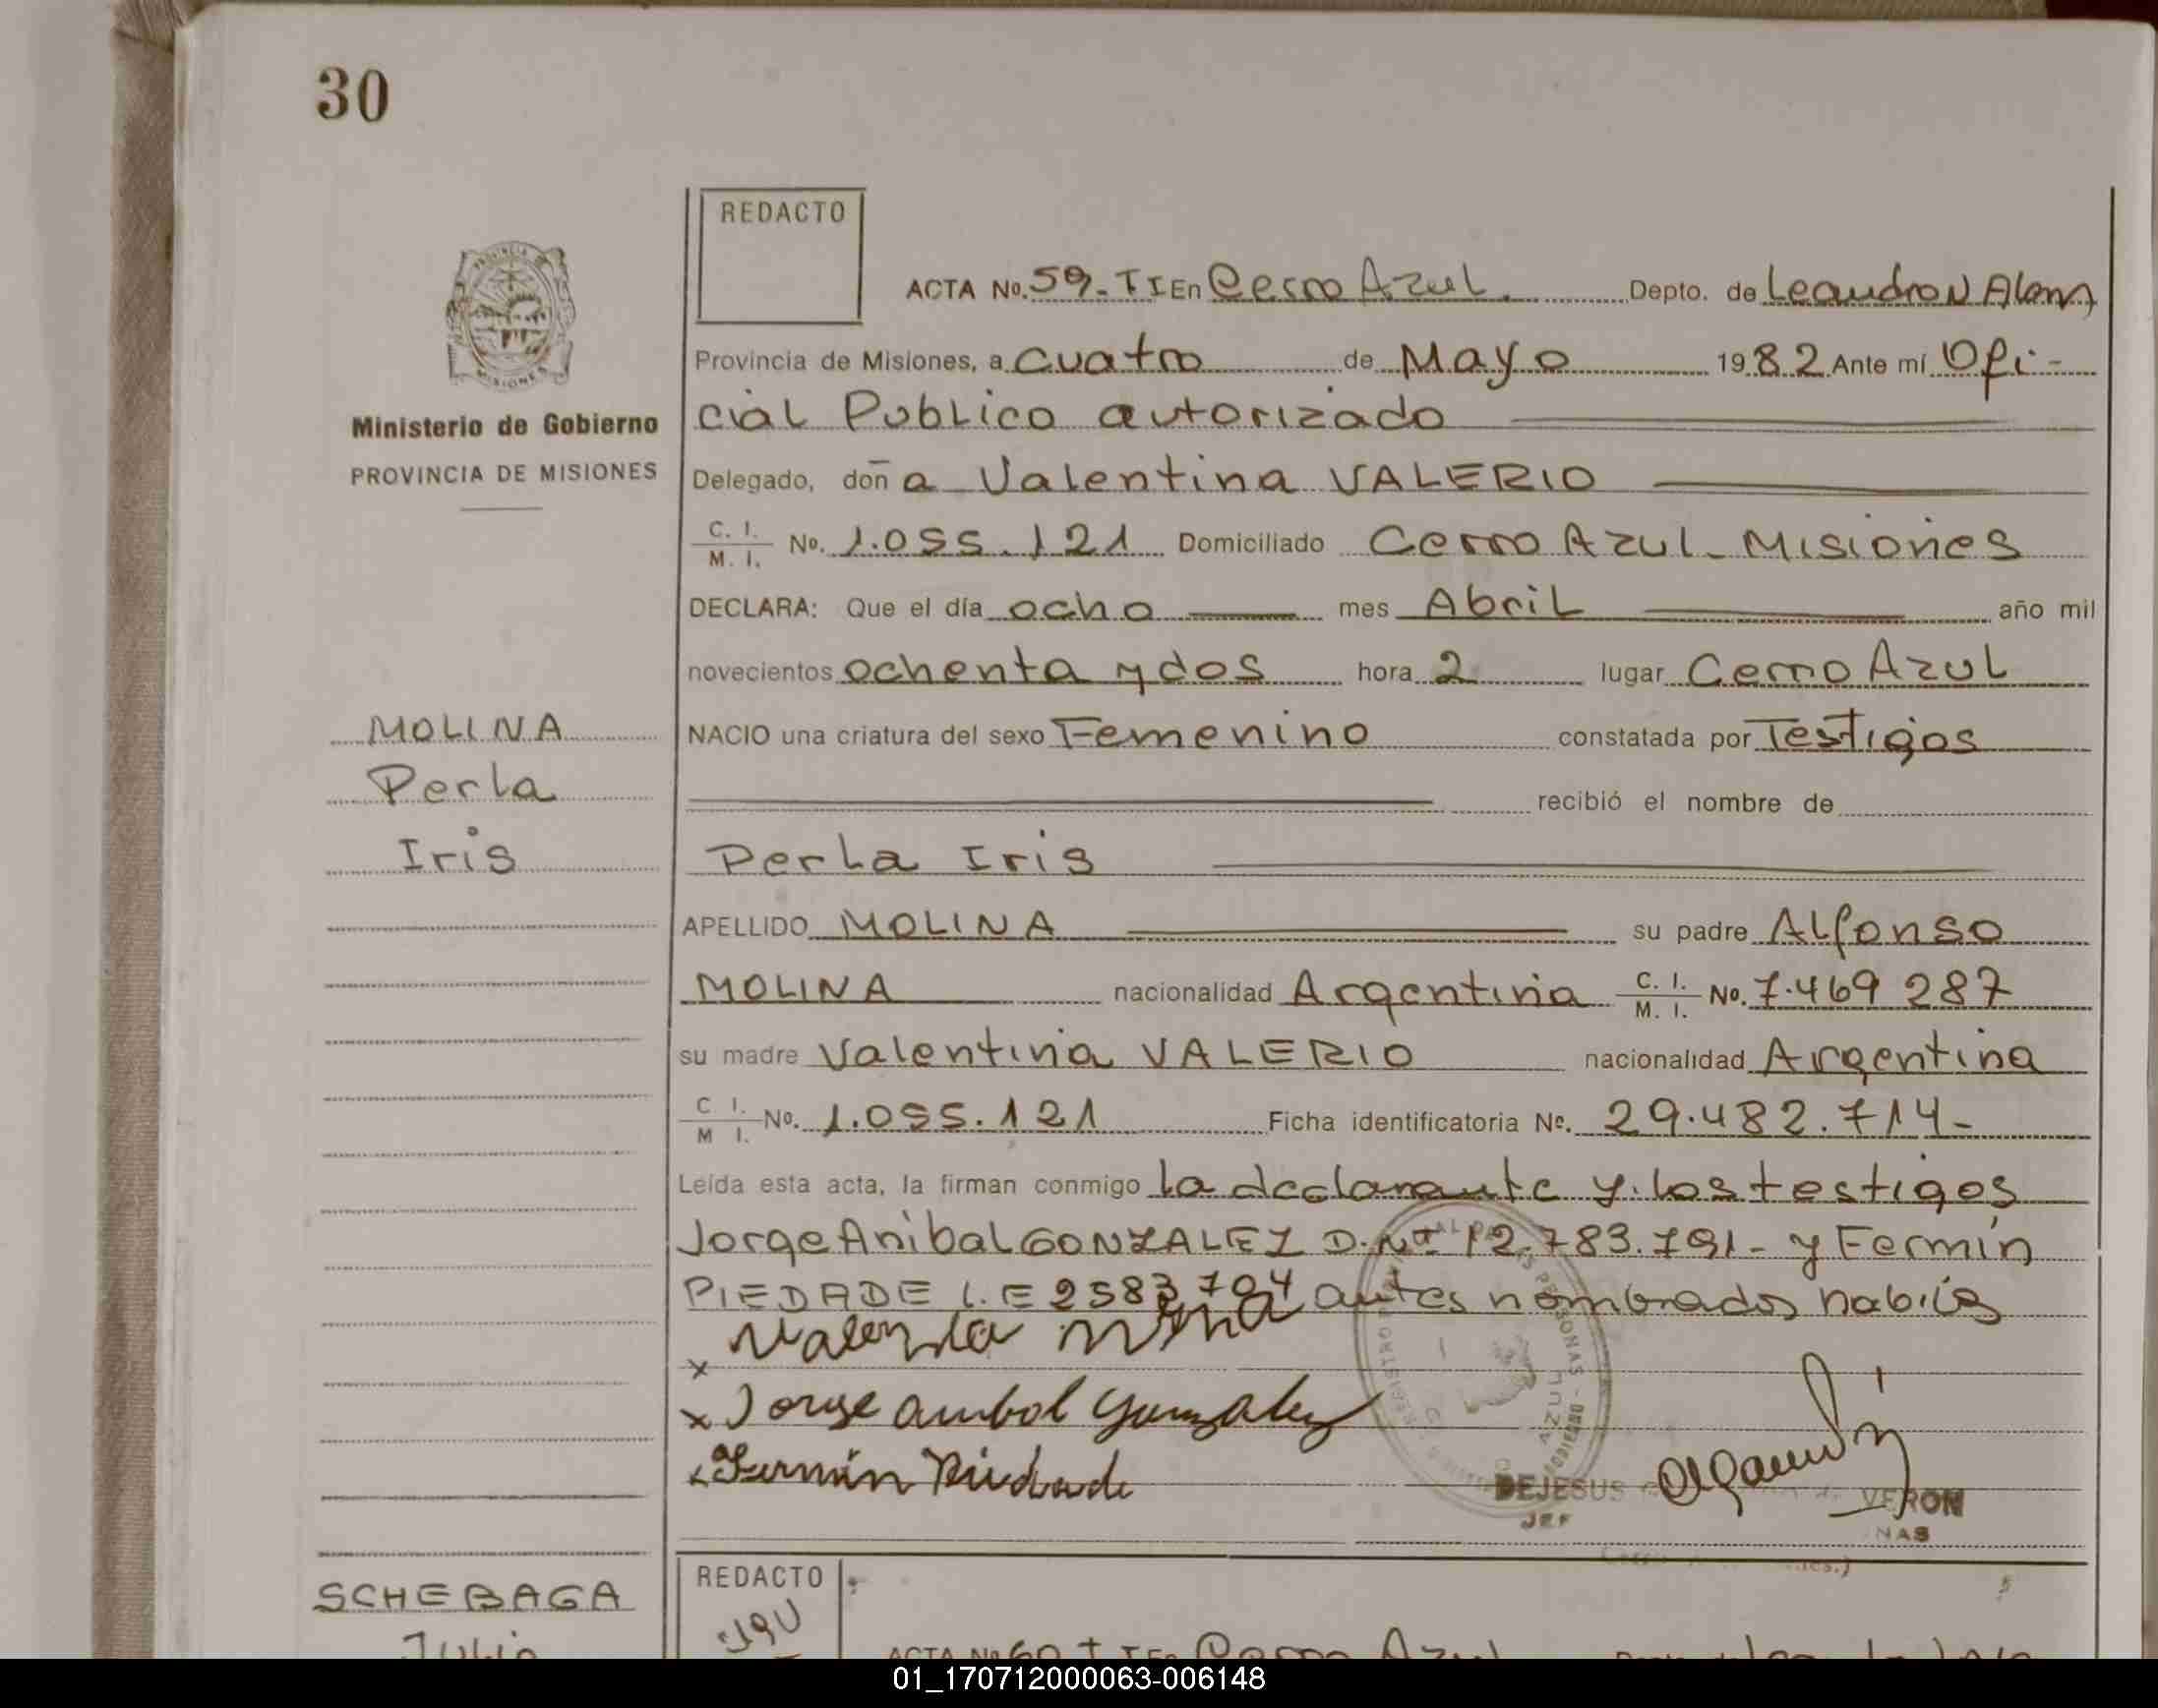 30
REDACTO
ACTA No. 59-TI En Cerro Azul. Depto. de Leandro N Alem
Provincia de Misiones, a cuatro de Mayo 1982 Ante mí Ofi-
cial Publico autorizado
Ministerio de Gobierno
PROVINCIA DE MISIONES
Delegado, doña Valentina VALERIO
C. I. M. I. No. 1.055.121 Domiciliado Cerro Azul - Misiones
DECLARA: Que el día ocho mes Abril año mil
novecientos ochenta y dos hora 2 lugar Cerro Azul
MOLINA
Perla
Iris
NACIO una criatura del sexo Femenino constatada por Testigos
recibió el nombre de
Perla Iris
APELLIDO MOLINA su padre Alfonso
MOLINA nacionalidad Argentina C. I. M. I. No. 7.469 287
su madre Valentina VALERIO nacionalidad Argentina
C I. M I. No. 1.055.121 Ficha identificatoria No. 29.482.714-
Leída esta acta, la firman conmigo la declarante y los testigos
Jorge Anibal GONZALEZ D.N° 12.783.791- y Fermín
PIEDADE L.E 2583704 antes nombrados
Jorge anibal Gonzalez
Fermín Piedade
DEJESUS VERON
JEF NAS
SCHEBAGA
Julio
REDACTO
ACTA No 60 En Cerro Azul
01_170712000063-006148